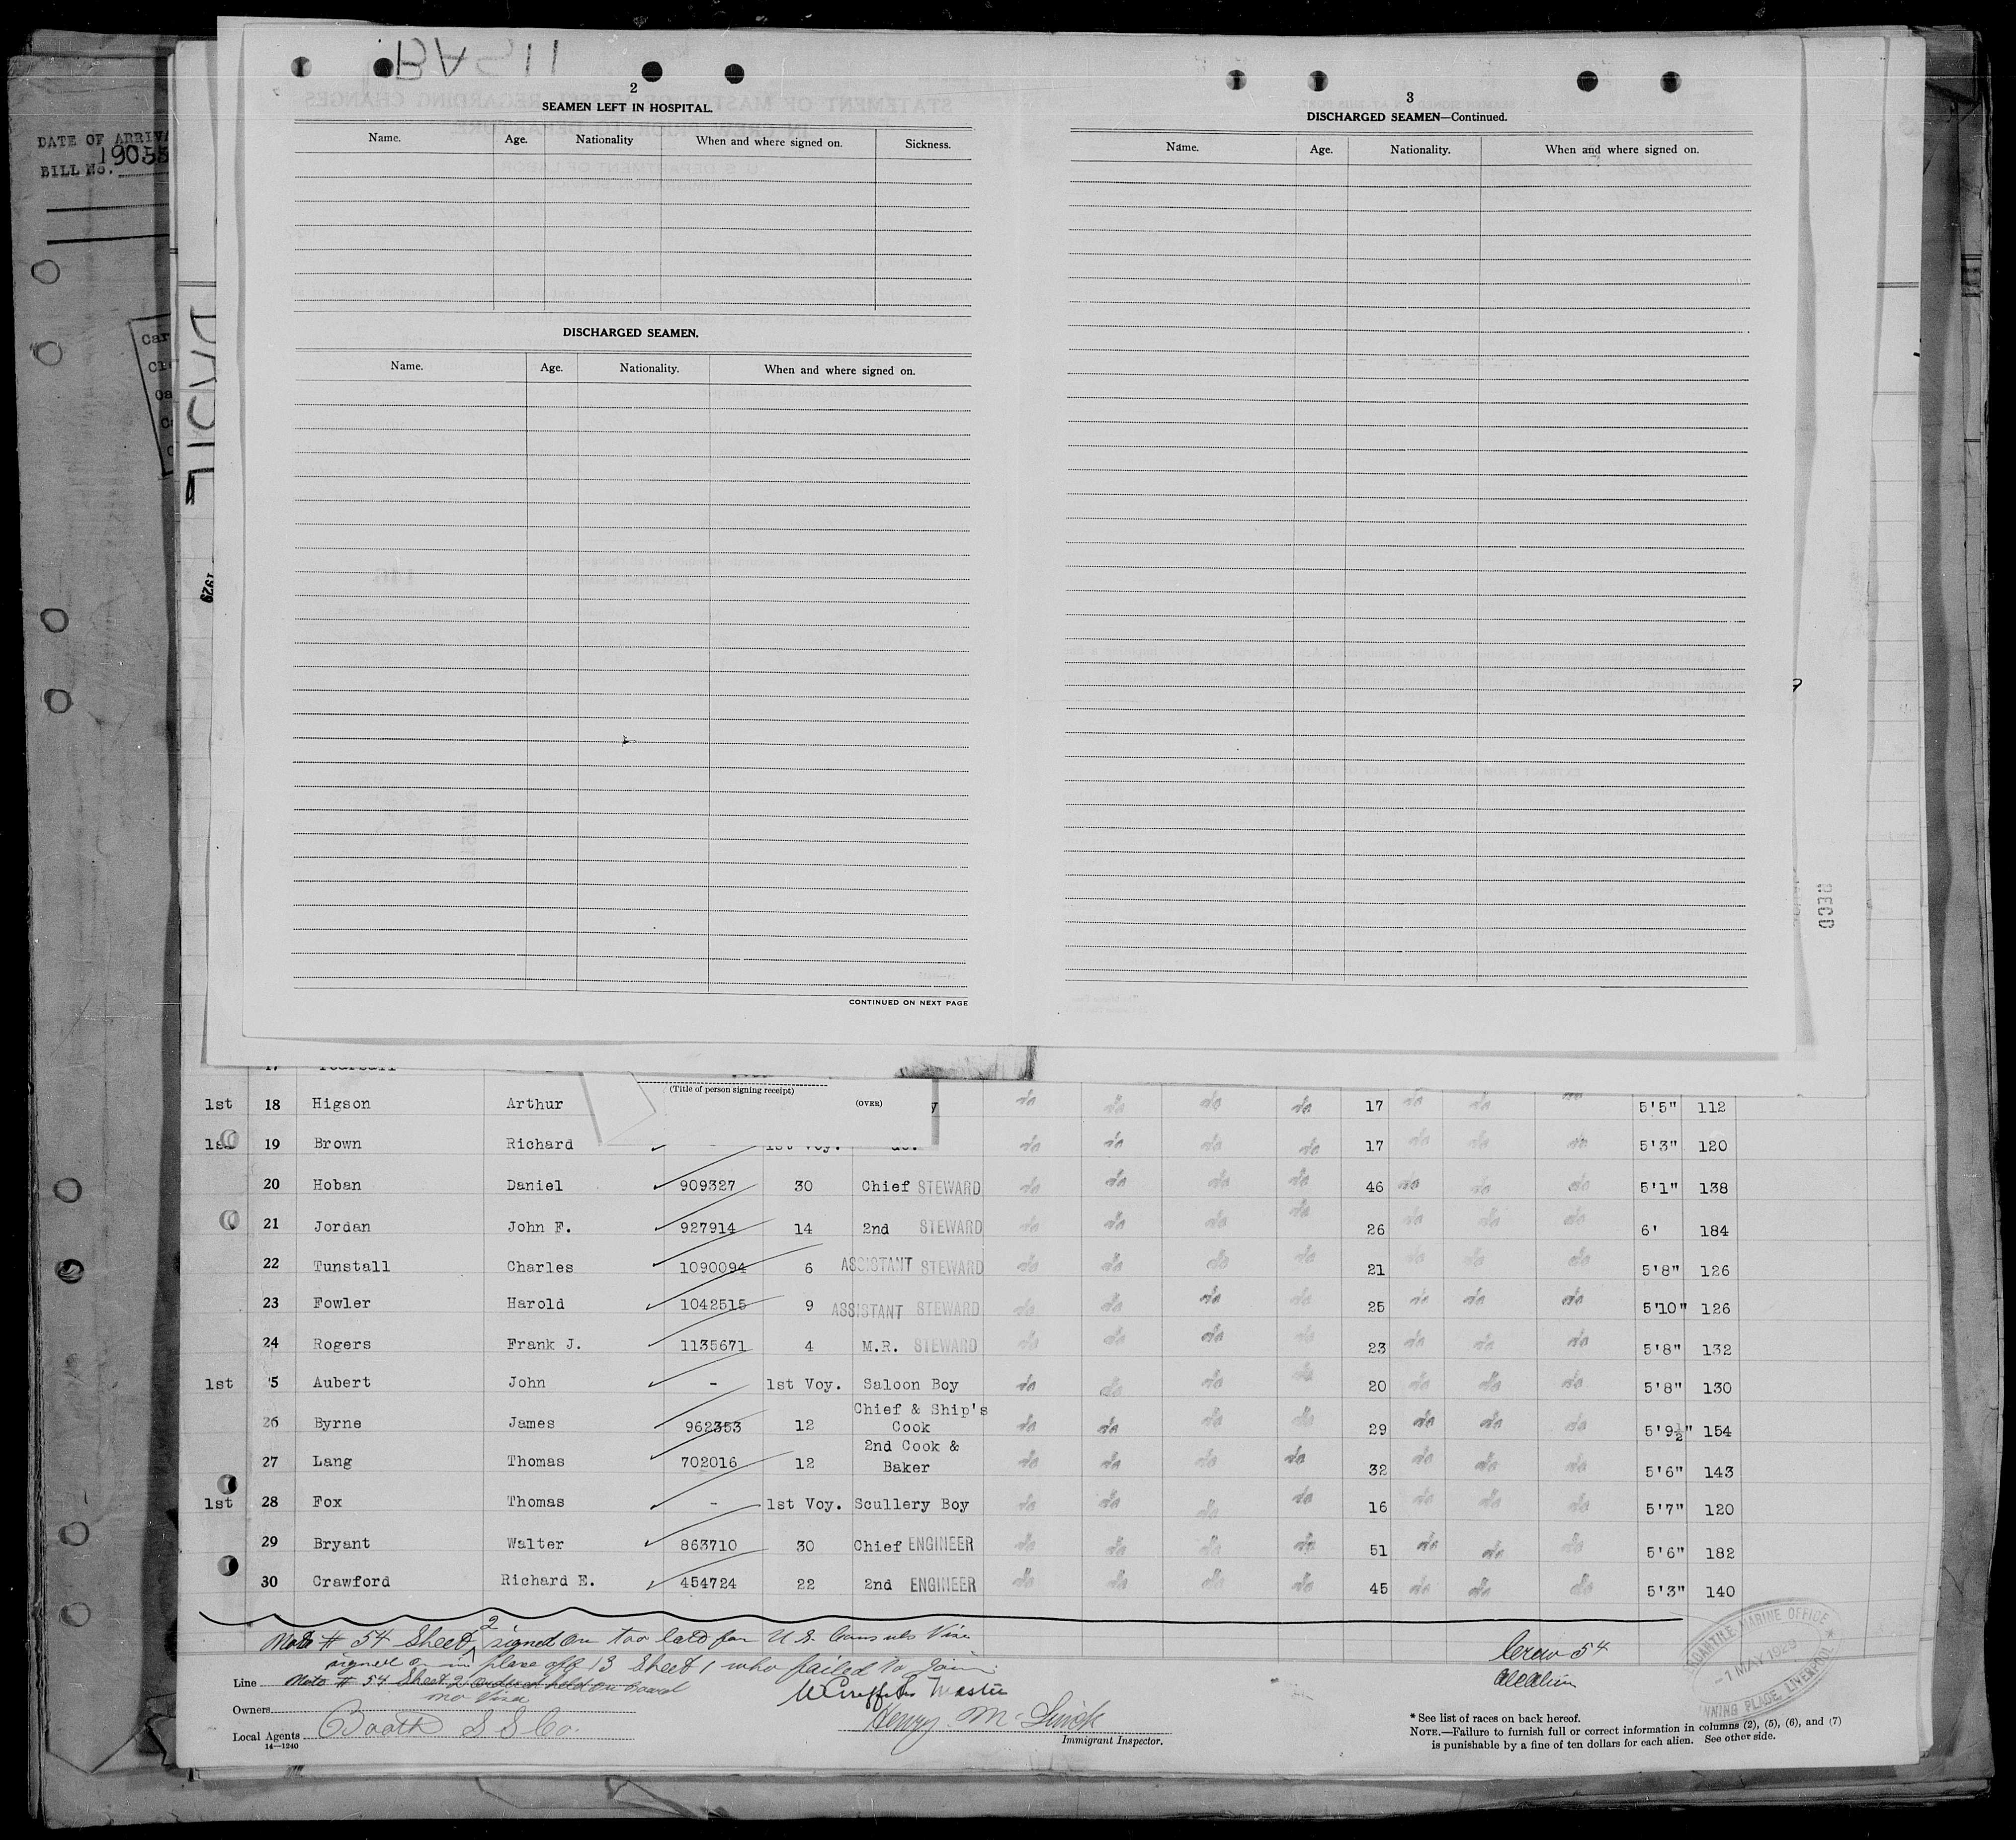 DATE OF ARRIVA
BILL No. 19055
2
SEAMEN LEFT IN HOSPITAL.
Name. Age. Nationality When and where signed on. Sickness.
DISCHARGED SEAMEN.
Name. Age. Nationality. When and where signed on.
CONTINUED ON NEXT PAGE
3
DISCHARGED SEAMEN—Continued.
Name. Age. Nationality. When and where signed on.
1929
RECD
(Title of person signing receipt)
(OVER)
17
1st 18 Higson Arthur do do do do 17 do do do 5'5" 112
1st 19 Brown Richard 1st Voy. do. do do do do 17 do do do 5'3" 120
20 Hoban Daniel 909327 30 Chief STEWARD do do do do 46 do do do 5'1" 138
21 Jordan John F. 927914 14 2nd STEWARD do do do do 26 do do do 6' 184
22 Tunstall Charles 1090094 6 ASSISTANT STEWARD do do do do 21 do do do 5'8" 126
23 Fowler Harold 1042515 9 ASSISTANT STEWARD do do do do 25 do do do 5'10" 126
24 Rogers Frank J. 1135671 4 M.R. STEWARD do do do do 23 do do do 5'8" 132
1st 5 Aubert John - 1st Voy. Saloon Boy do do do do 20 do do do 5'8" 130
26 Byrne James 962353 12 Chief & Ship's Cook do do do do 29 do do do 5'9½" 154
27 Lang Thomas 702016 12 2nd Cook & Baker do do do do 32 do do do 5'6" 143
1st 28 Fox Thomas - 1st Voy. Scullery Boy do do do do 16 do do do 5'7" 120
29 Bryant Walter 863710 30 Chief ENGINEER do do do do 51 do do do 5'6" 182
30 Crawford Richard E. 454724 22 2nd ENGINEER do do do do 45 do do do 5'3" 140
Note # 54 Sheet 2 signed on too late for U.S. Consuls Visa
signed on in place of # 13 Sheet 1 who failed to join.
Line Note # 54 Sheet 2 ordered held on board
no Visa
W Griffiths Master
Owners
Local Agents Booth S S Co.
14—1240
Henry
Immigrant Inspector.
Crew 54
All Alien
MERCANTILE MARINE OFFICE
-1 MAY 1929
LIVERPOOL
* See list of races on back hereof.
NOTE.—Failure to furnish full or correct information in columns (2), (5), (6), and (7)
is punishable by a fine of ten dollars for each alien. See other side.